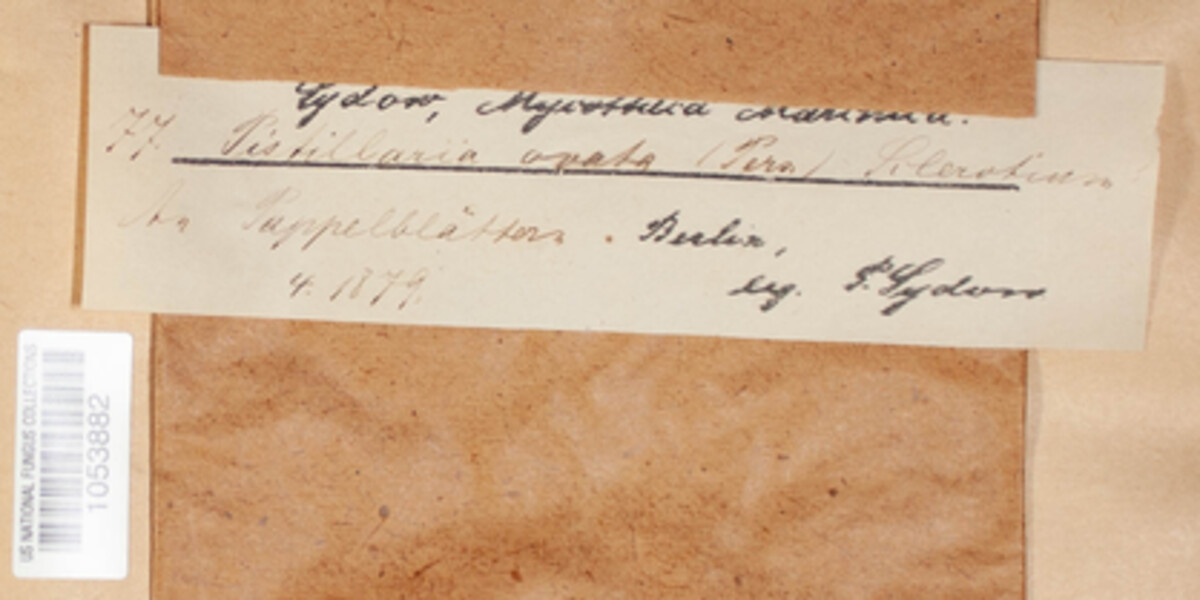 Sydow, Mycotheca Marchica.
77. Pistillaria ovata (Pers) Sclerotium
An Pappelblättern. Berlin,
4. 1879. leg. P. Sydow
US NATIONAL FUNGUS COLLECTIONS
1053882